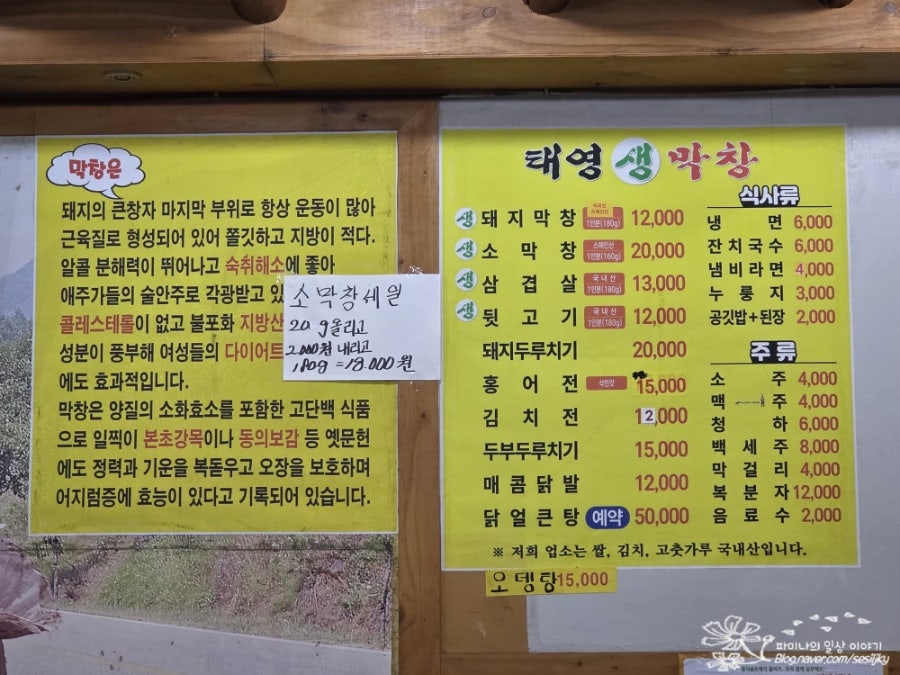 막창은
돼지의 큰창자 마지막 부위로 항상 운동이 많아
근육질로 형성되어 있어 쫄깃하고 지방이 적다.
알콜 분해력이 뛰어나고 숙취해소에 좋아
애주가들의 술안주로 각광받고 있
콜레스테롤이 없고 불포화 지방산
성분이 풍부해 여성들의 다이어트
에도 효과적입니다.
막창은 양질의 소화효소를 포함한 고단백 식품
으로 일찍이 본초강목이나 동의보감 등 옛문헌
에도 정력과 기운을 복돋우고 오장을 보호하며
어지럼증에 효능이 있다고 기록되어 있습니다.
소막창세일
20g올리고
2000원 내리고
180g=18.000원
태영생막창
생 돼지막창 1인분(180g) 12,000
생 소막창 스페인산 1인분(160g) 20,000
생 삼겹살 국내산 1인분(180g) 13,000
생 뒷고기 국내산 1인분(180g) 12,000
돼지두루치기 20,000
홍어전 삭힌것 15,000
김치전 12,000
두부두루치기 15,000
매콤닭발 12,000
닭얼큰탕 예약 50,000
식사류
냉면 6,000
잔치국수 6,000
냄비라면 4,000
누룽지 3,000
공깃밥+된장 2,000
주류
소주 4,000
맥주 4,000
청하 6,000
백세주 8,000
막걸리 4,000
복분자 12,000
음료수 2,000
※ 저희 업소는 쌀, 김치, 고춧가루 국내산입니다.
오뎅탕 15,000
파미나의 일상 이야기
Blog.naver.com/sesiljky